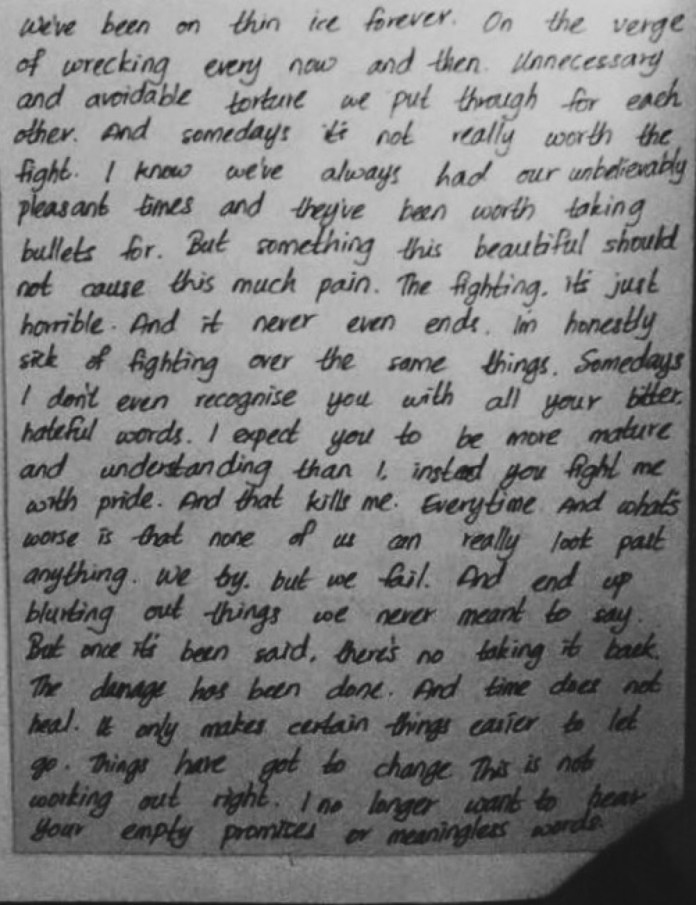 We've been on thin ice forever. On the verge
of wrecking every now and then. Unnecessary
and avoidable torture we put through for each
other. And somedays it's not really worth the
fight. I know we've always had our unbelievably
pleasant times and they've been worth taking
bullets for. But something this beautiful should
not cause this much pain. The fighting, it's just
horrible. And it never even ends. I'm honestly
sick of fighting over the same things. Somedays
I don't even recognise you with all your bitter,
hateful words. I expect you to be more mature
and understanding than I, insted you fight me
with pride. And that kills me. Everytime. And what's
worse is that none of us can really look past
anything. We try, but we fail. And end up
blurting out things we never meant to say.
But once it's been said, there's no taking it back.
The damage has been done. And time does not
heal. It only makes certain things easier to let
go. Things have got to change. This is not
working out right. I no longer want to hear
your empty promises or meaningless words.